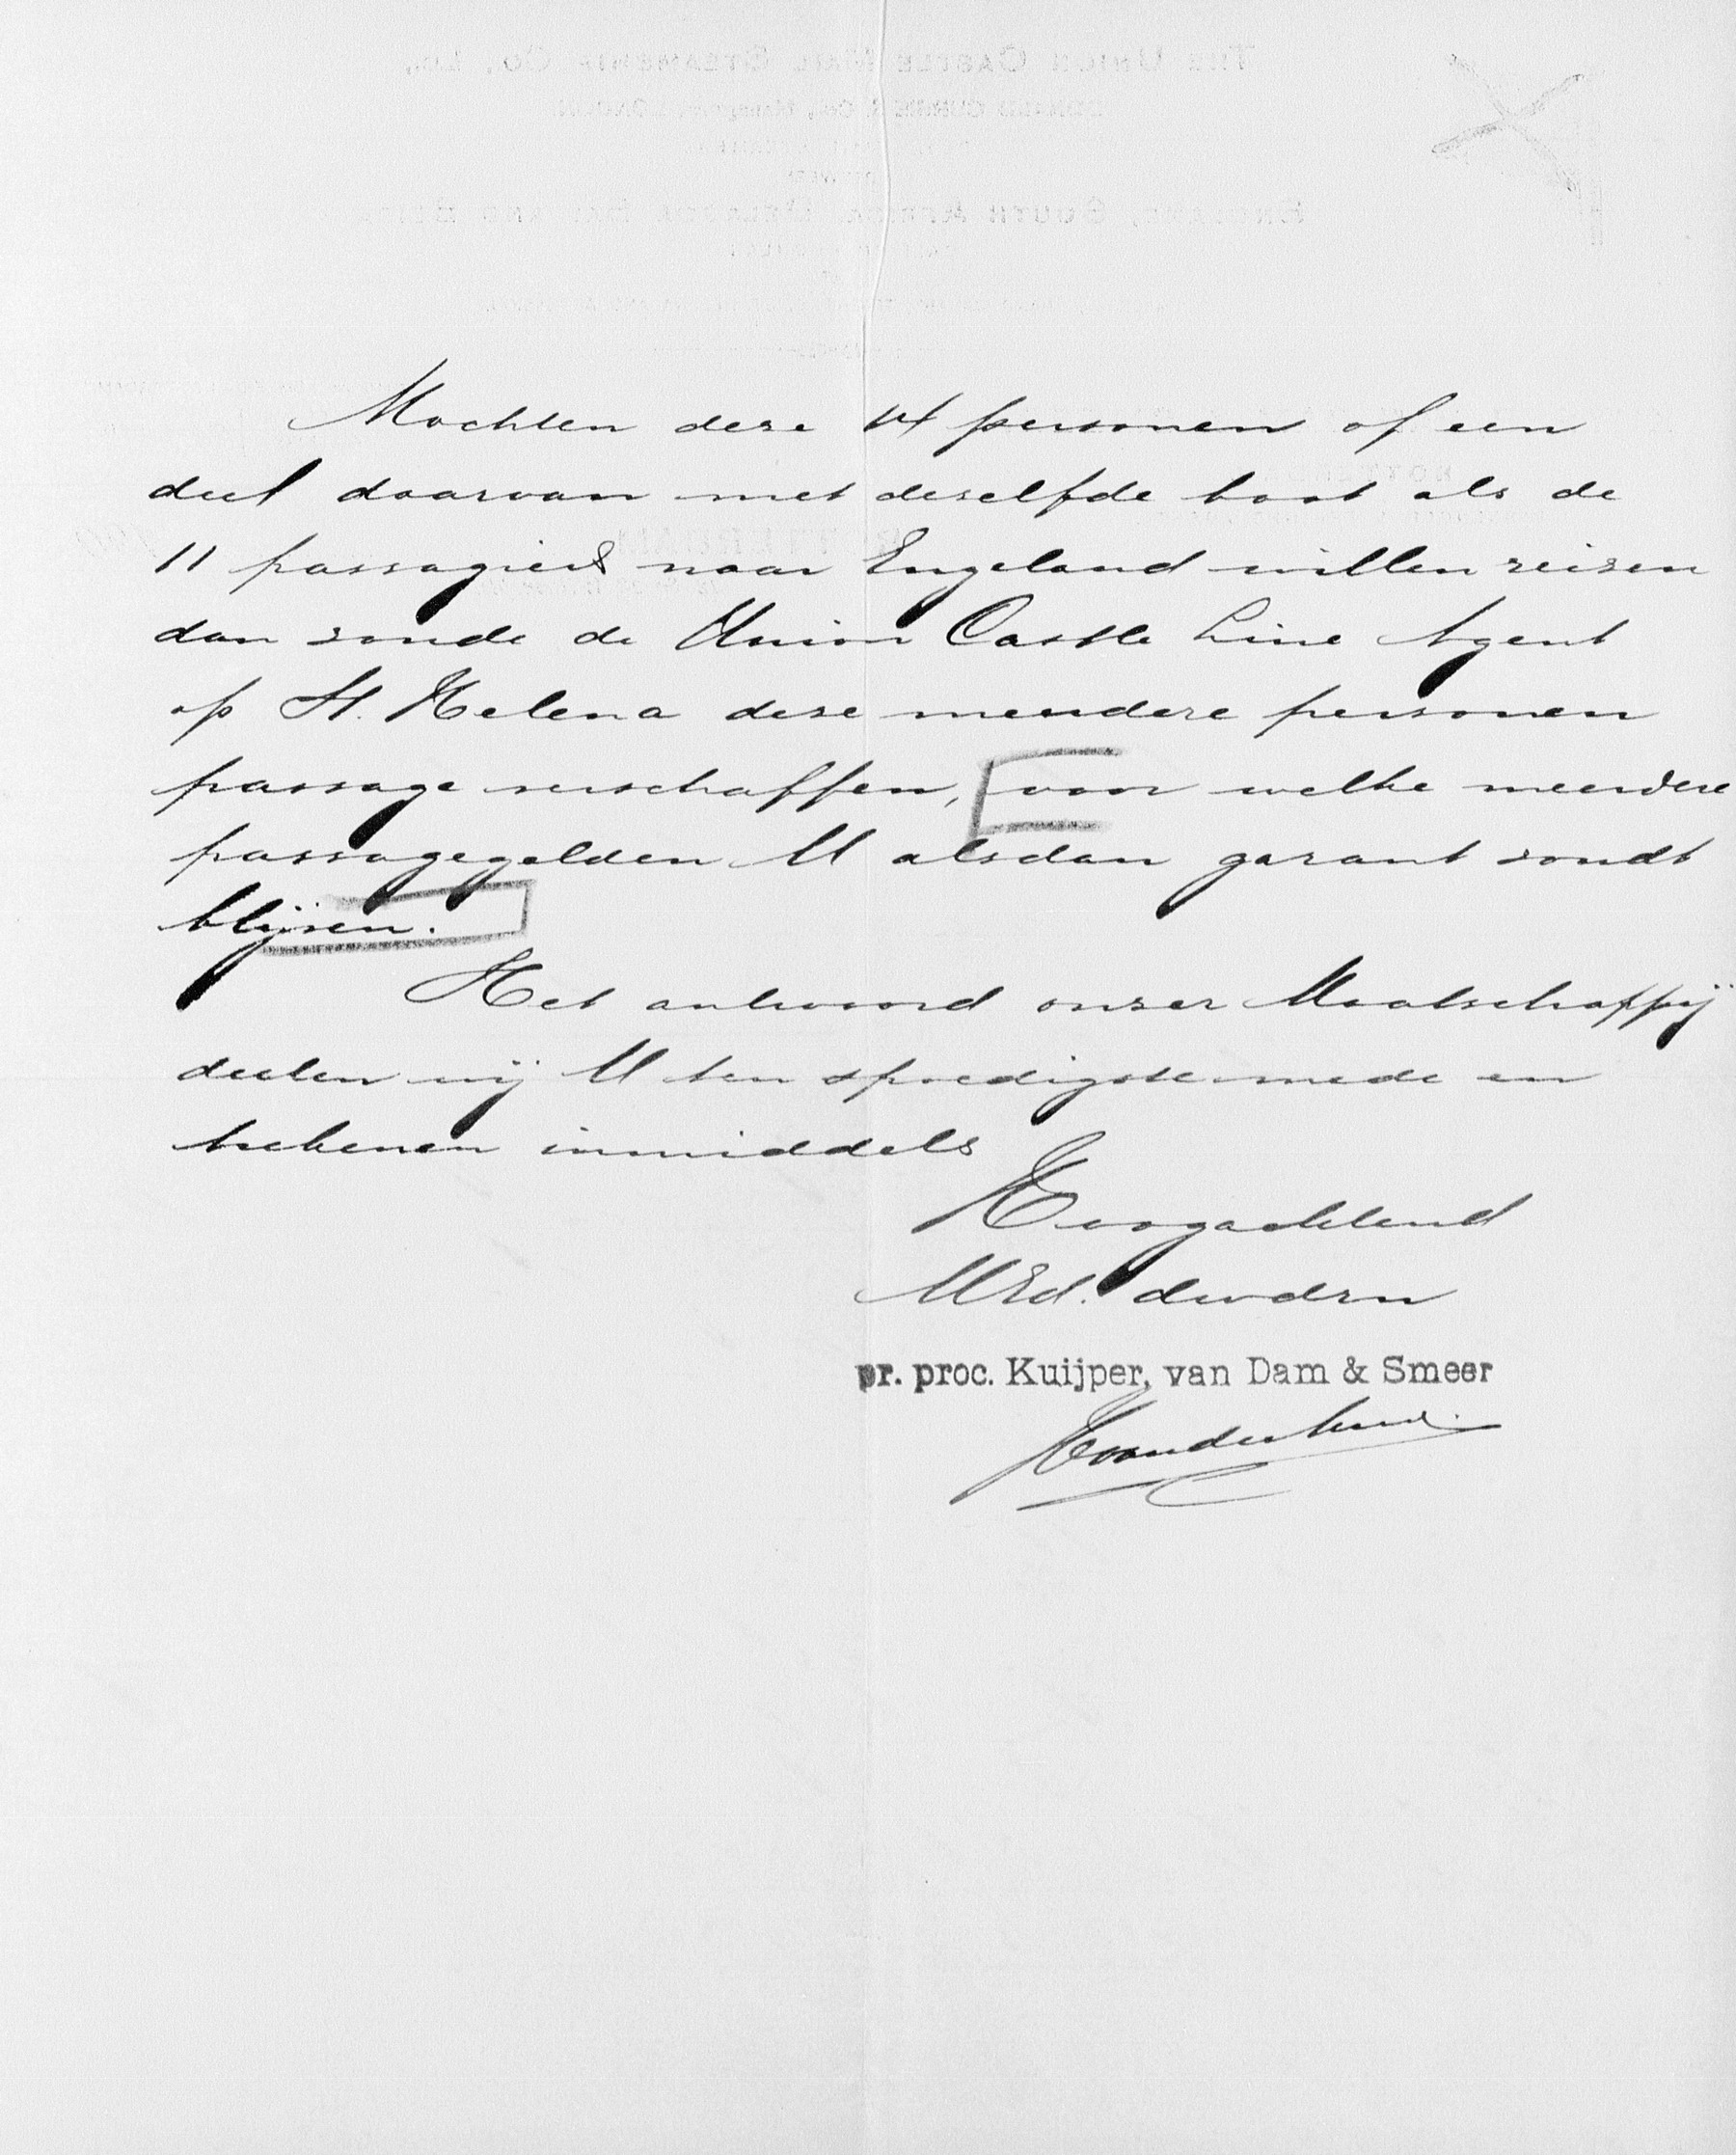 Mochten deze 14 personen of een
deel daarvan met dezelfde boot als de
11 passagiers naar Engeland willen reizen
dan zoude de Union Castle Line Agent
op St. Helena deze meerdere personen
passage verschaffen, voor welke meerdere
passagegelden U alsdan garant zoudt
blijven.
Het antwoord onzer Maatschappij
deelen wij U ten spoedigste mede en
teekenen inmiddels
Hoogachtend
UEd. dwdrn
pr. proc. Kuijper, van Dam & Smeer